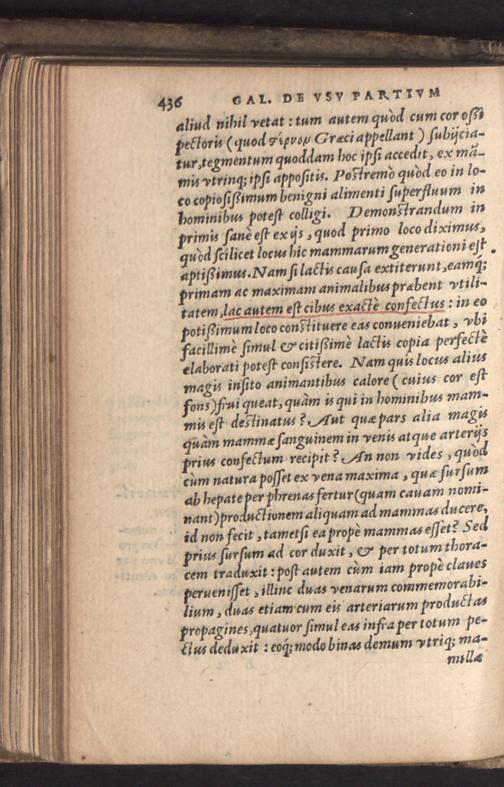 436 GAL. DE VSV PARTIVM
aliud nihil vetat : tum autem quòd cum cor ossi
pectoris (quod ςέρνον Græci appellant) subijcia-
tur, tegmentum quoddam hoc ipsi accedit, ex mā-
mis vtrinq; ipsi appositis. Postremò quòd eo in lo-
co copiosissimum benigni alimenti superfluum in
hominibus potest colligi. Demonstrandum in
primis sanè est ex ijs, quod primo loco diximus,
quòd scilicet locus hic mammarum generationi est
aptissimus. Nam si lactis causa extiterunt, eamq;
primam ac maximam animalibus præbent vtili-
tatem, lac autem est cibus exactè confectus : in eo
potissimum loco constituere eas conueniebat, vbi
facillimè simul & citissimè lactis copia perfectè
elaborati potest consistere. Nam quis locus alius
magis insito animantibus calore (cuius cor est
fons) frui queat, quàm is qui in hominibus mam-
mis est destinatus? Aut quæ pars alia magis
quàm mammæ sanguinem in venis atque arterijs
prius confectum recipit? An non vides, quòd
cùm natura posset ex vena maxima, quæ sursum
ab hepate per phrenas fertur (quam cauam nomi-
nant) productionem aliquam ad mammas ducere,
id non fecit, tametsi ea propè mammas esset? Sed
prius sursum ad cor duxit, & per totum thora-
cem traduxit : post autem cùm iam propè claues
peruenisset, illinc duas venarum commemorabi-
lium, duas etiam cum eis arteriarum productas
propagines, quatuor simul eas infra per totum pe-
ctus deduxit : eoq́; modo binas demum vtriq; ma-
millæ